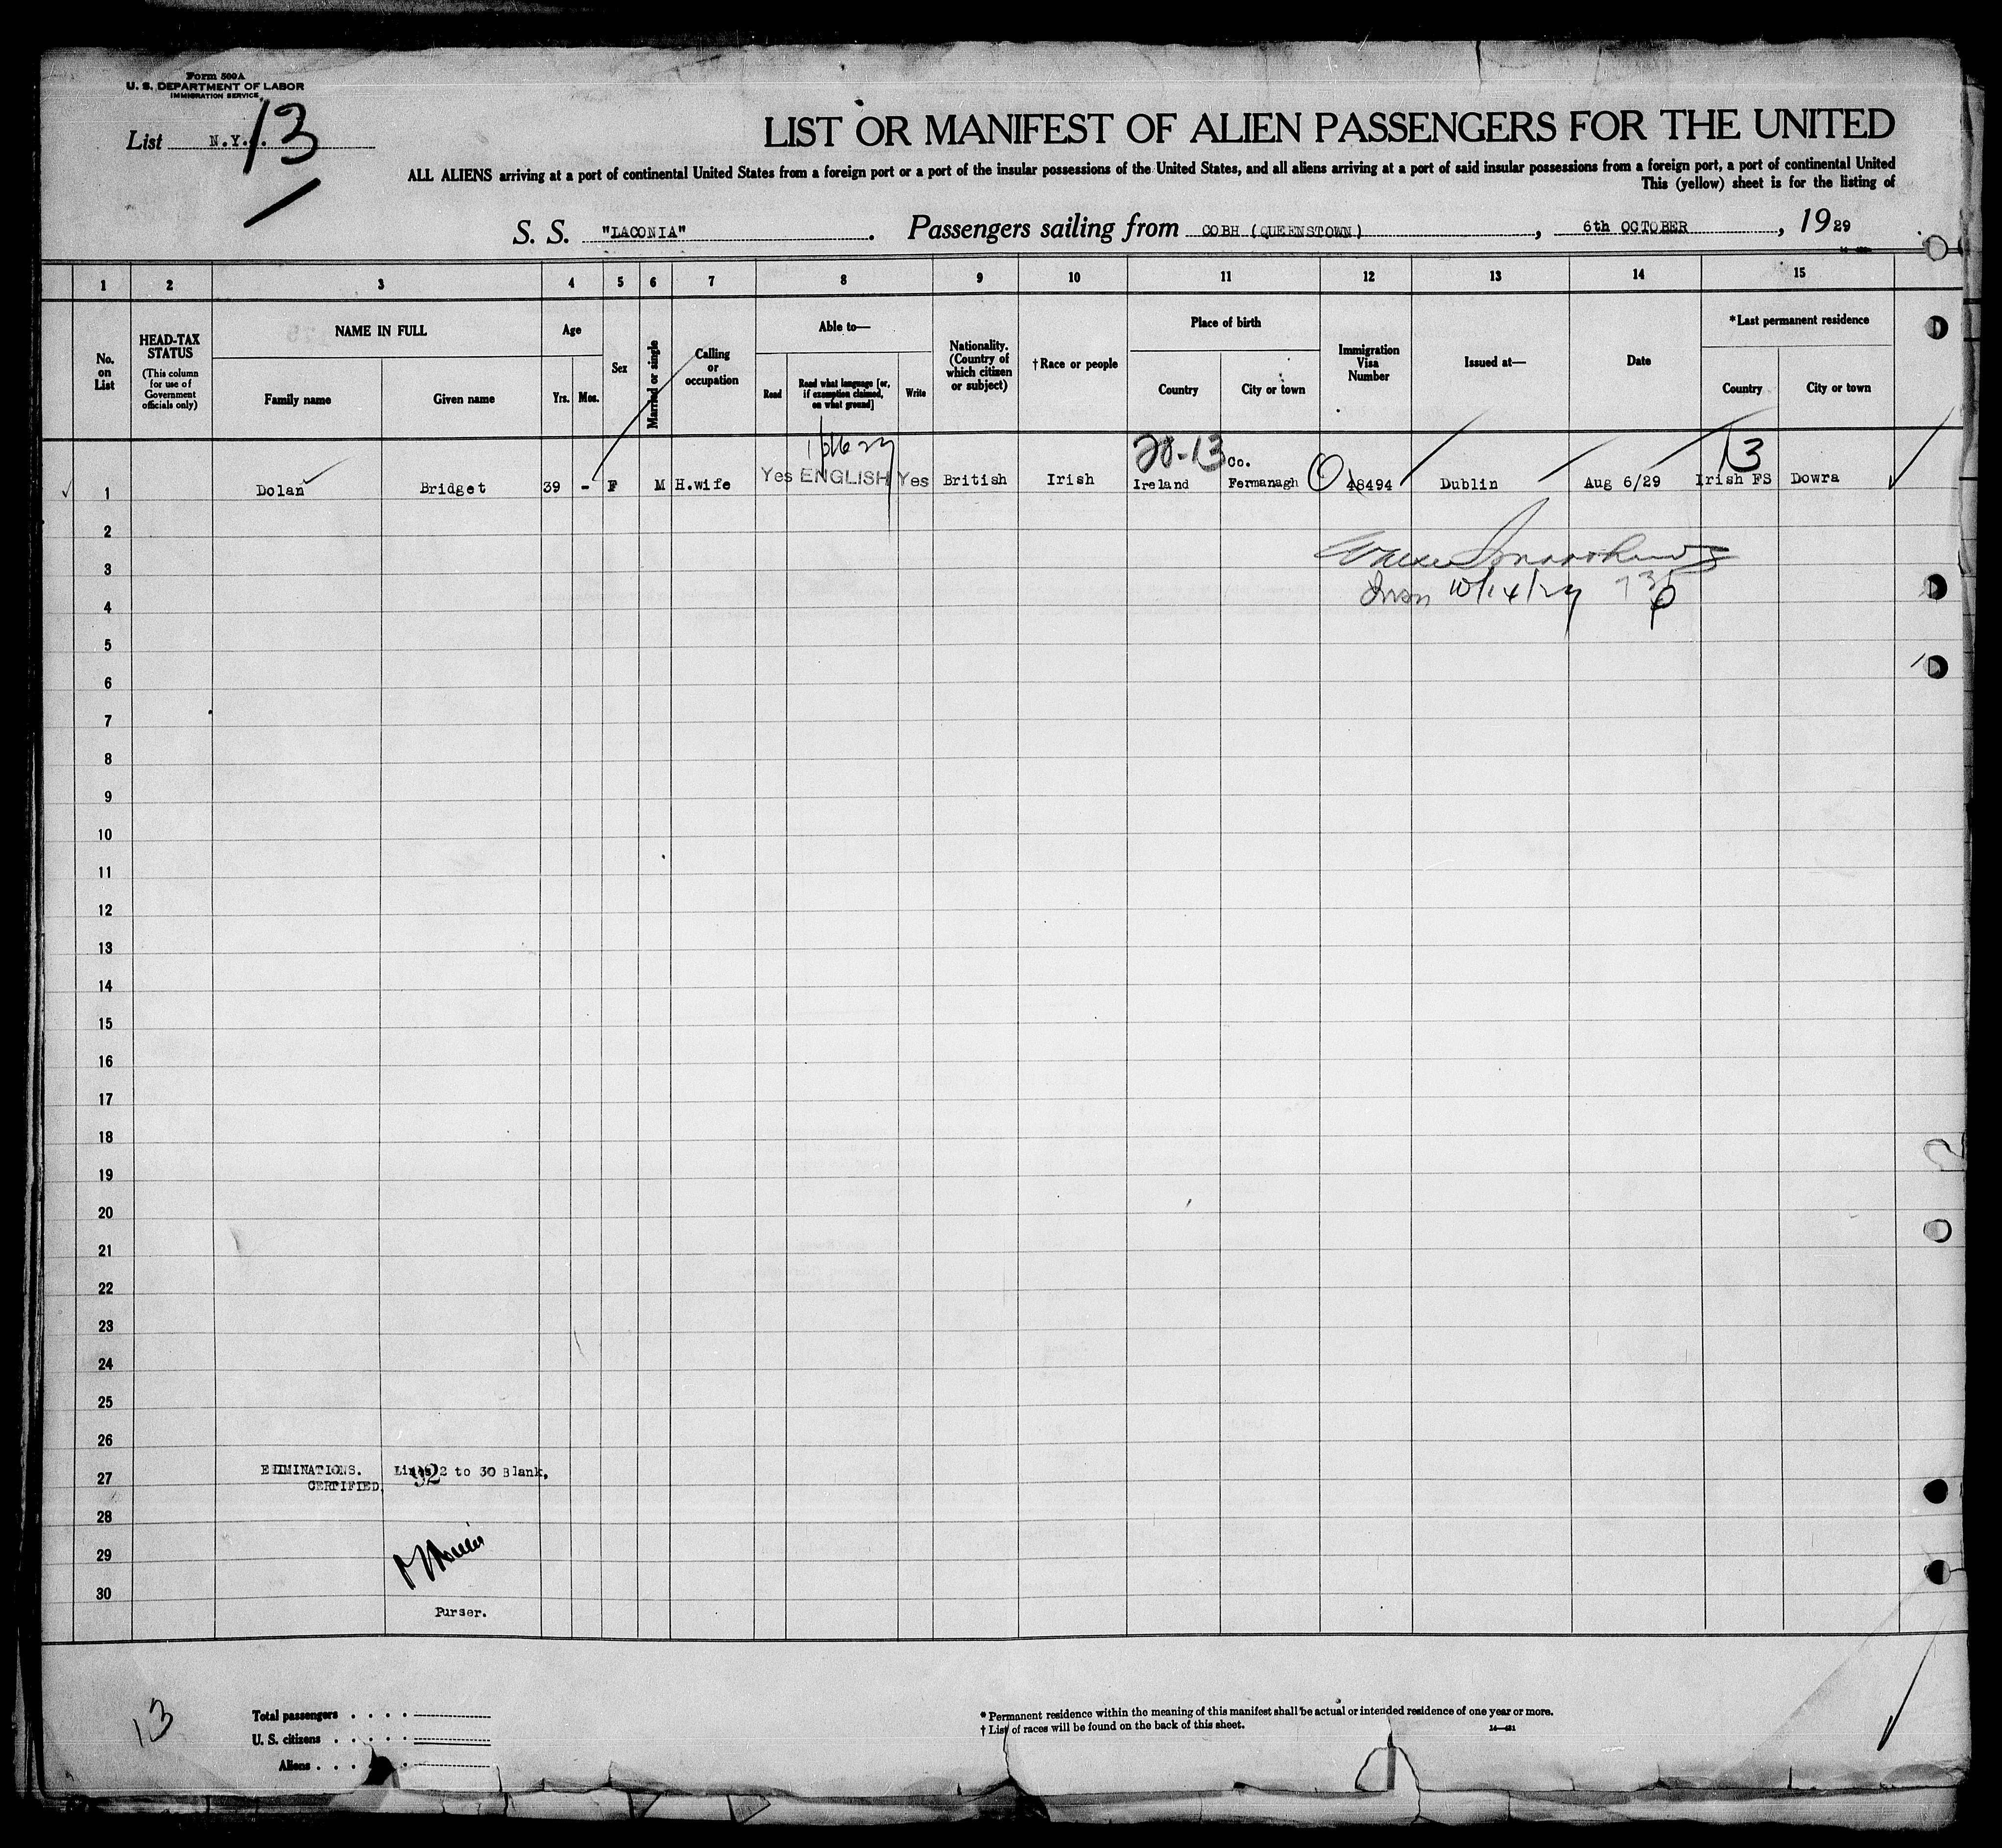 Form 500A
U. S. DEPARTMENT OF LABOR
IMMIGRATION SERVICE
List N.Y. 13
LIST OR MANIFEST OF ALIEN PASSENGERS FOR THE UNITED
ALL ALIENS arriving at a port of continental United States from a foreign port or a port of the insular possessions of the United States, and all aliens arriving at a port of said insular possessions from a foreign port, a port of continental United
This (yellow) sheet is for the listing of
S. S. "LACONIA". Passengers sailing from COBH (QUEENSTOWN), 6th OCTOBER, 1929
1 2 3 4 5 6 7 8 9 10 11 12 13 14 15
No. on List
HEAD-TAX STATUS
(This column for use of Government officials only)
NAME IN FULL
Family name Given name
Age
Yrs. Mos.
Sex
Married or single
Calling or occupation
Able to—
Read
Read what language [or, if exemption claimed, on what ground]
Write
Nationality. (Country of which citizen or subject)
†Race or people
Place of birth
Country City or town
Immigration Visa Number
Issued at—
Date
*Last permanent residence
Country City or town
28-13 13
1 Dolan Bridget 39 - F M H.wife Yes ENGLISH Yes British Irish Ireland Co. Fermanagh 48494 Dublin Aug 6/29 Irish FS Dowra
2
3
10/14/29
4
5
6
7
8
9
10
11
12
13
14
15
16
17
18
19
20
21
22
23
24
25
26
27 ELIMINATIONS. Lines 2 to 30 Blank.
92
CERTIFIED.
28
29
30
Purser.
13
Total passengers
U. S. citizens
Aliens
* Permanent residence within the meaning of this manifest shall be actual or intended residence of one year or more.
† List of races will be found on the back of this sheet. 14—431